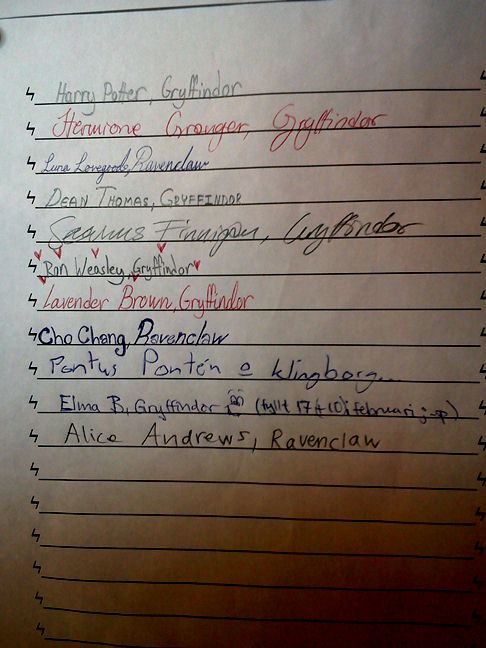 Harry Potter, Gryffindor
Hermione Granger, Gryffindor
Luna Lovegood, Ravenclaw
DEAN THOMAS, GRYFFINDOR
Seamus Finnigan, Gryffindor
Ron Weasley, Gryffindor
Lavender Brown, Gryffindor
Cho Chang, Ravenclaw
Pontus Pontén e klingborg...
Elma B, Gryffindor (fyllt 17 i februari
Alice Andrews, Ravenclaw